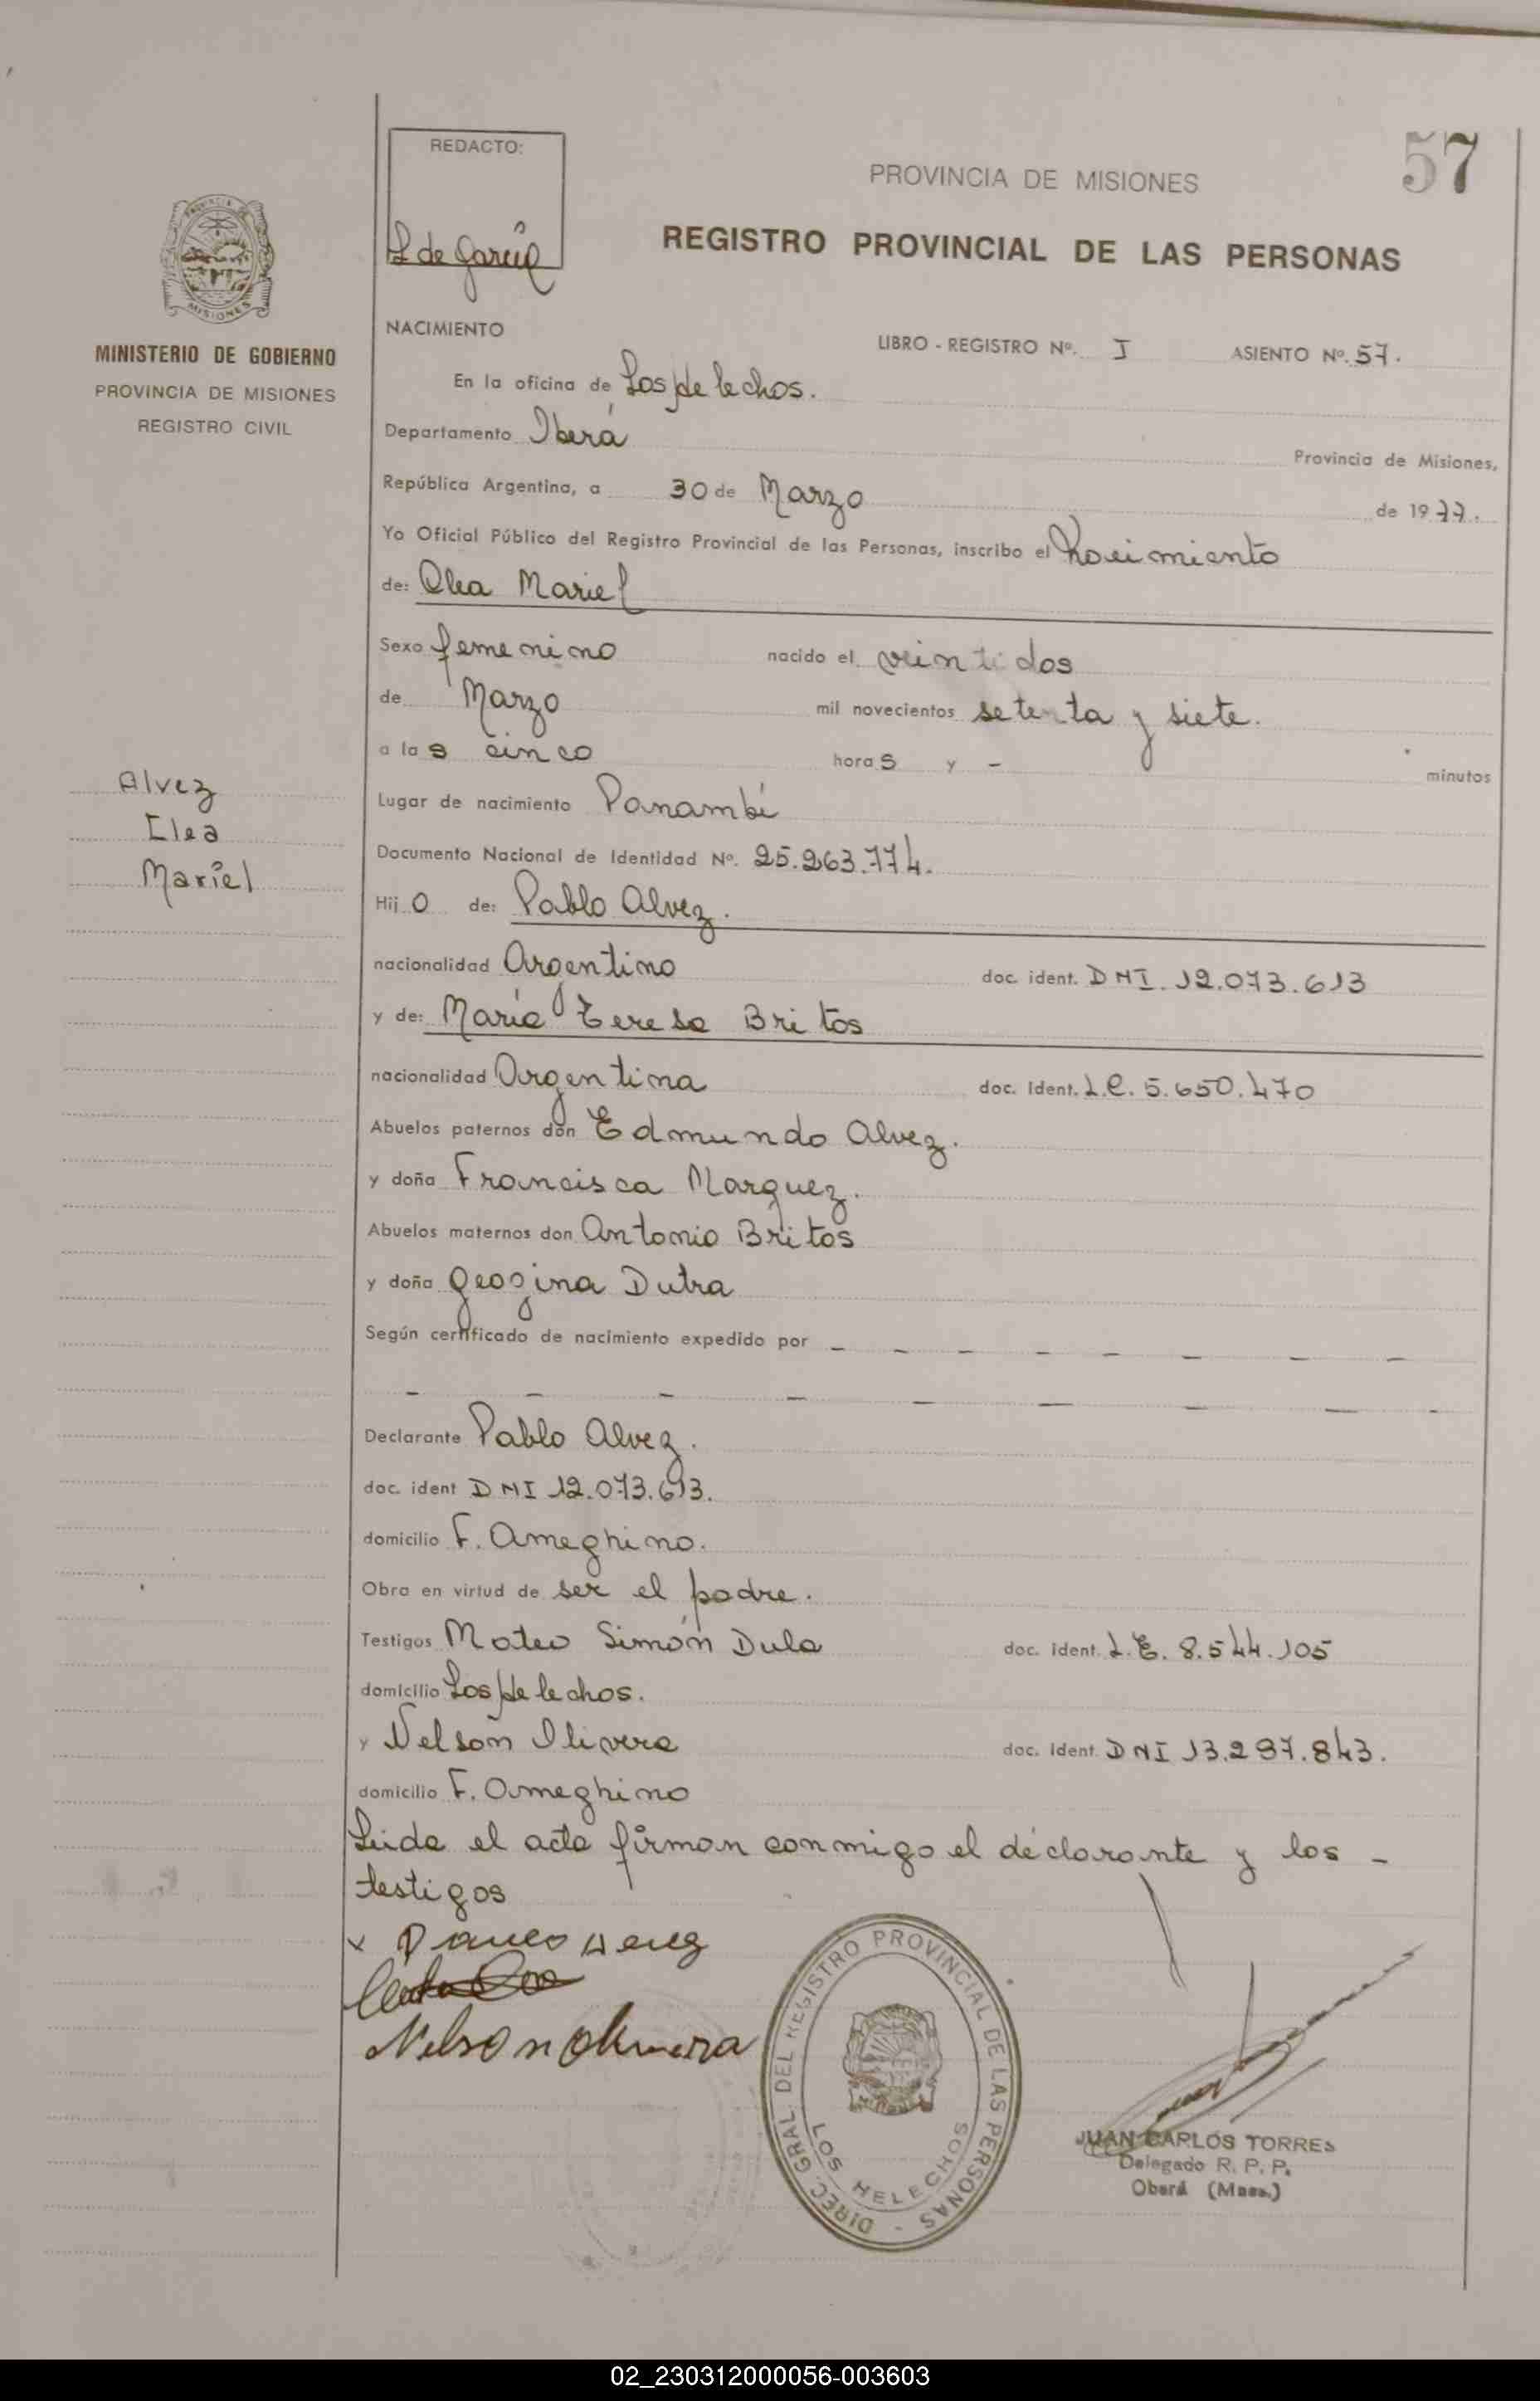 57
REDACTO:
L de García
PROVINCIA DE MISIONES
REGISTRO PROVINCIAL DE LAS PERSONAS
PROVINCIA DE
MISIONES
MINISTERIO DE GOBIERNO
PROVINCIA DE MISIONES
REGISTRO CIVIL
NACIMIENTO
LIBRO - REGISTRO Nº. I ASIENTO Nº. 57.
En la oficina de Los Helechos.
Departamento Iberá
Provincia de Misiones,
República Argentina, a 30 de Marzo de 1977.
Yo Oficial Público del Registro Provincial de las Personas, inscribo el Nacimiento
de: Clea Mariel
Sexo femenino nacido el veintidos
de Marzo mil novecientos setenta y siete.
a las cinco horas y - minutos
Alvez
Clea
Mariel
Lugar de nacimiento Panambí
Documento Nacional de Identidad Nº. 25.263.774.
Hijo de: Pablo Alvez.
nacionalidad Argentino doc. ident. DNI. 12.073.613
y de: María Teresa Britos
nacionalidad Argentina doc. ident. L.C. 5.650.470
Abuelos paternos don Edmundo Alvez.
y doña Francisca Marquez.
Abuelos maternos don Antonio Britos
y doña Geogina Dutra
Según certificado de nacimiento expedido por - - - - - - - -
- - - - - - - - -
Declarante Pablo Alvez.
doc. ident DNI 12.073.613.
domicilio F. Ameghino.
Obra en virtud de ser el padre.
Testigos Mateo Simón Dula doc. ident. L.E. 8.544.105
domicilio Los Helechos.
y Nelson Olivera doc. ident. DNI 13.297.843.
domicilio F. Ameghino
Leida el acta firman conmigo el declarante y los -
testigos
x
Nelson Olivera
DIREC. GRAL. DEL REGISTRO PROVINCIAL DE LAS PERSONAS -
LOS HELECHOS
JUAN CARLOS TORRES
Delegado R. P. P.
Oberá (Mnes.)
02_230312000056-003603